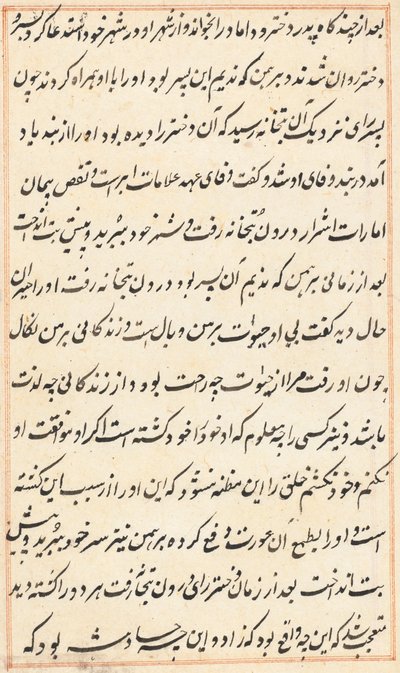 بعد از چند گاه پدر دختر و داماد را بخواند و از شهر او در شهر خود استدعا کرد پسر و
دختر روان شدند و برهمن که ندیم این پسر بود او را با او همراه کردند چون
پسر رای نزدیک آن بتخانه رسید که آن دختر را دیده بود او را از نذر یاد
آمد در بند وفای او شد و گفت وفای عهد علامات ابرار است و نقض پیمان
امارات اشرار درون بتخانه رفت و سر خود ببرید و پیش بت انداخت
بعد از زمانی برهمن که ندیم آن پسر بود درون بتخانه رفت او را حیران
حال دید گفت بی او حیوٰت بر من وبال است و زندگانی بر من نکال
چون او رفت مرا از حیوٰت چه راحت بود و از زندگانی چه لذت
باشد و نیز کسی را چه معلوم که او خود را خود کشته است اگر او موافقت او
نکنم و خود نکشم خلق را این مظنه میشود که این او را از سبب این کشته
است و او را بطمع آن عورت دفع کرده برهمن نیز سر خود ببرید و پیش
بت انداخت بعد از زمان دختر رای درون بتخانه رفت هر دو را کشته دید
متعجب شد که این چه واقع بود که زاد و این چه حادثه بود که